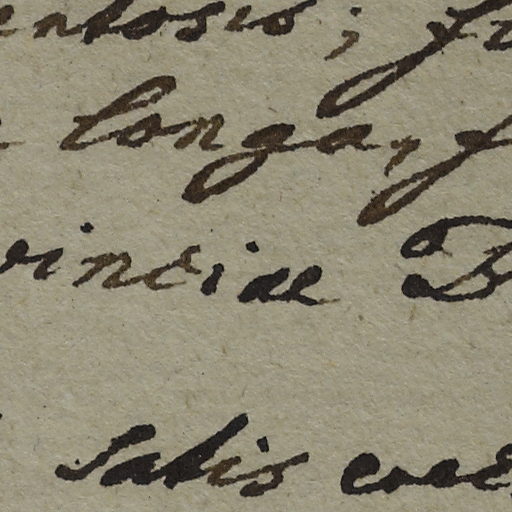 entosis; f
longa, f
vinciae B
Satis coae